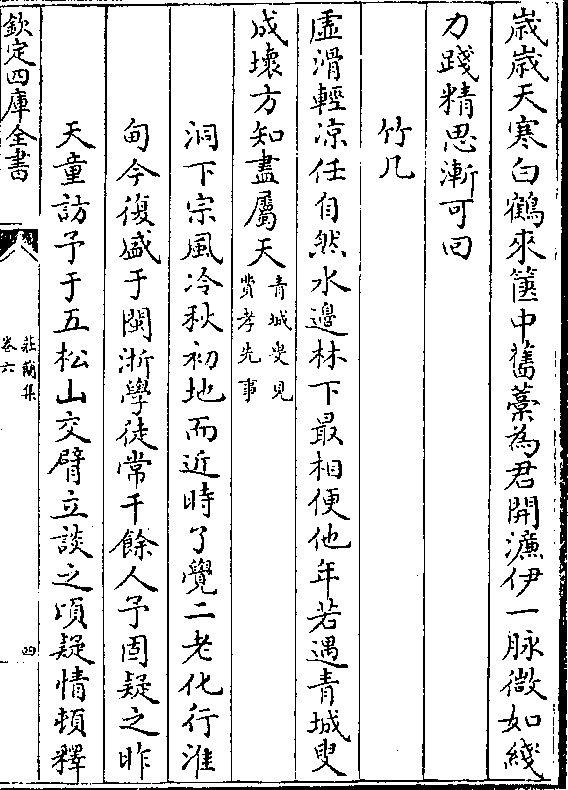 歳歳天寒白鶴來篋中舊藁為君開濂伊一脉微如綫
力踐精思漸可回
竹几
虚滑輕凉任自然水邊林下最相便他年若遇青城叟
成壊方知盡屬天青城叟見
費孝先事
洞下宗風冷秋初地而近時了覺二老化行淮
甸今復盛于閩浙學徒常千餘人予固疑之昨
天童訪予于五松山交臂立談之頃疑情頓釋
欽定四庫全書
莊簡集
卷六
四